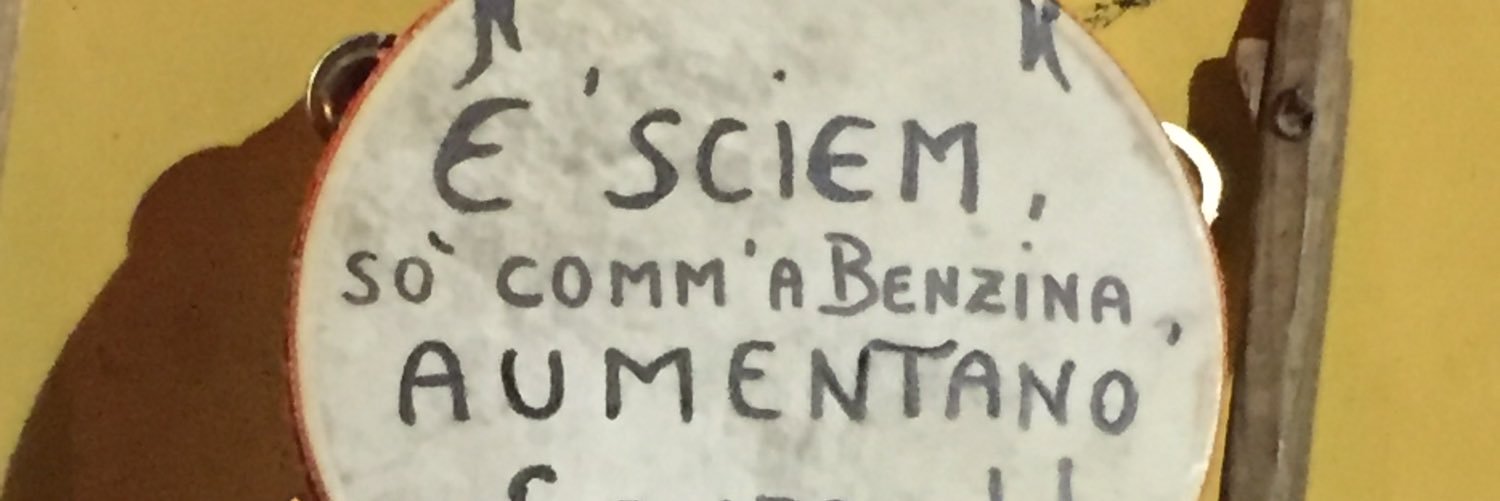 E 'SCIEM,
SO' COMM'A BENZINA,
AUMENTANO